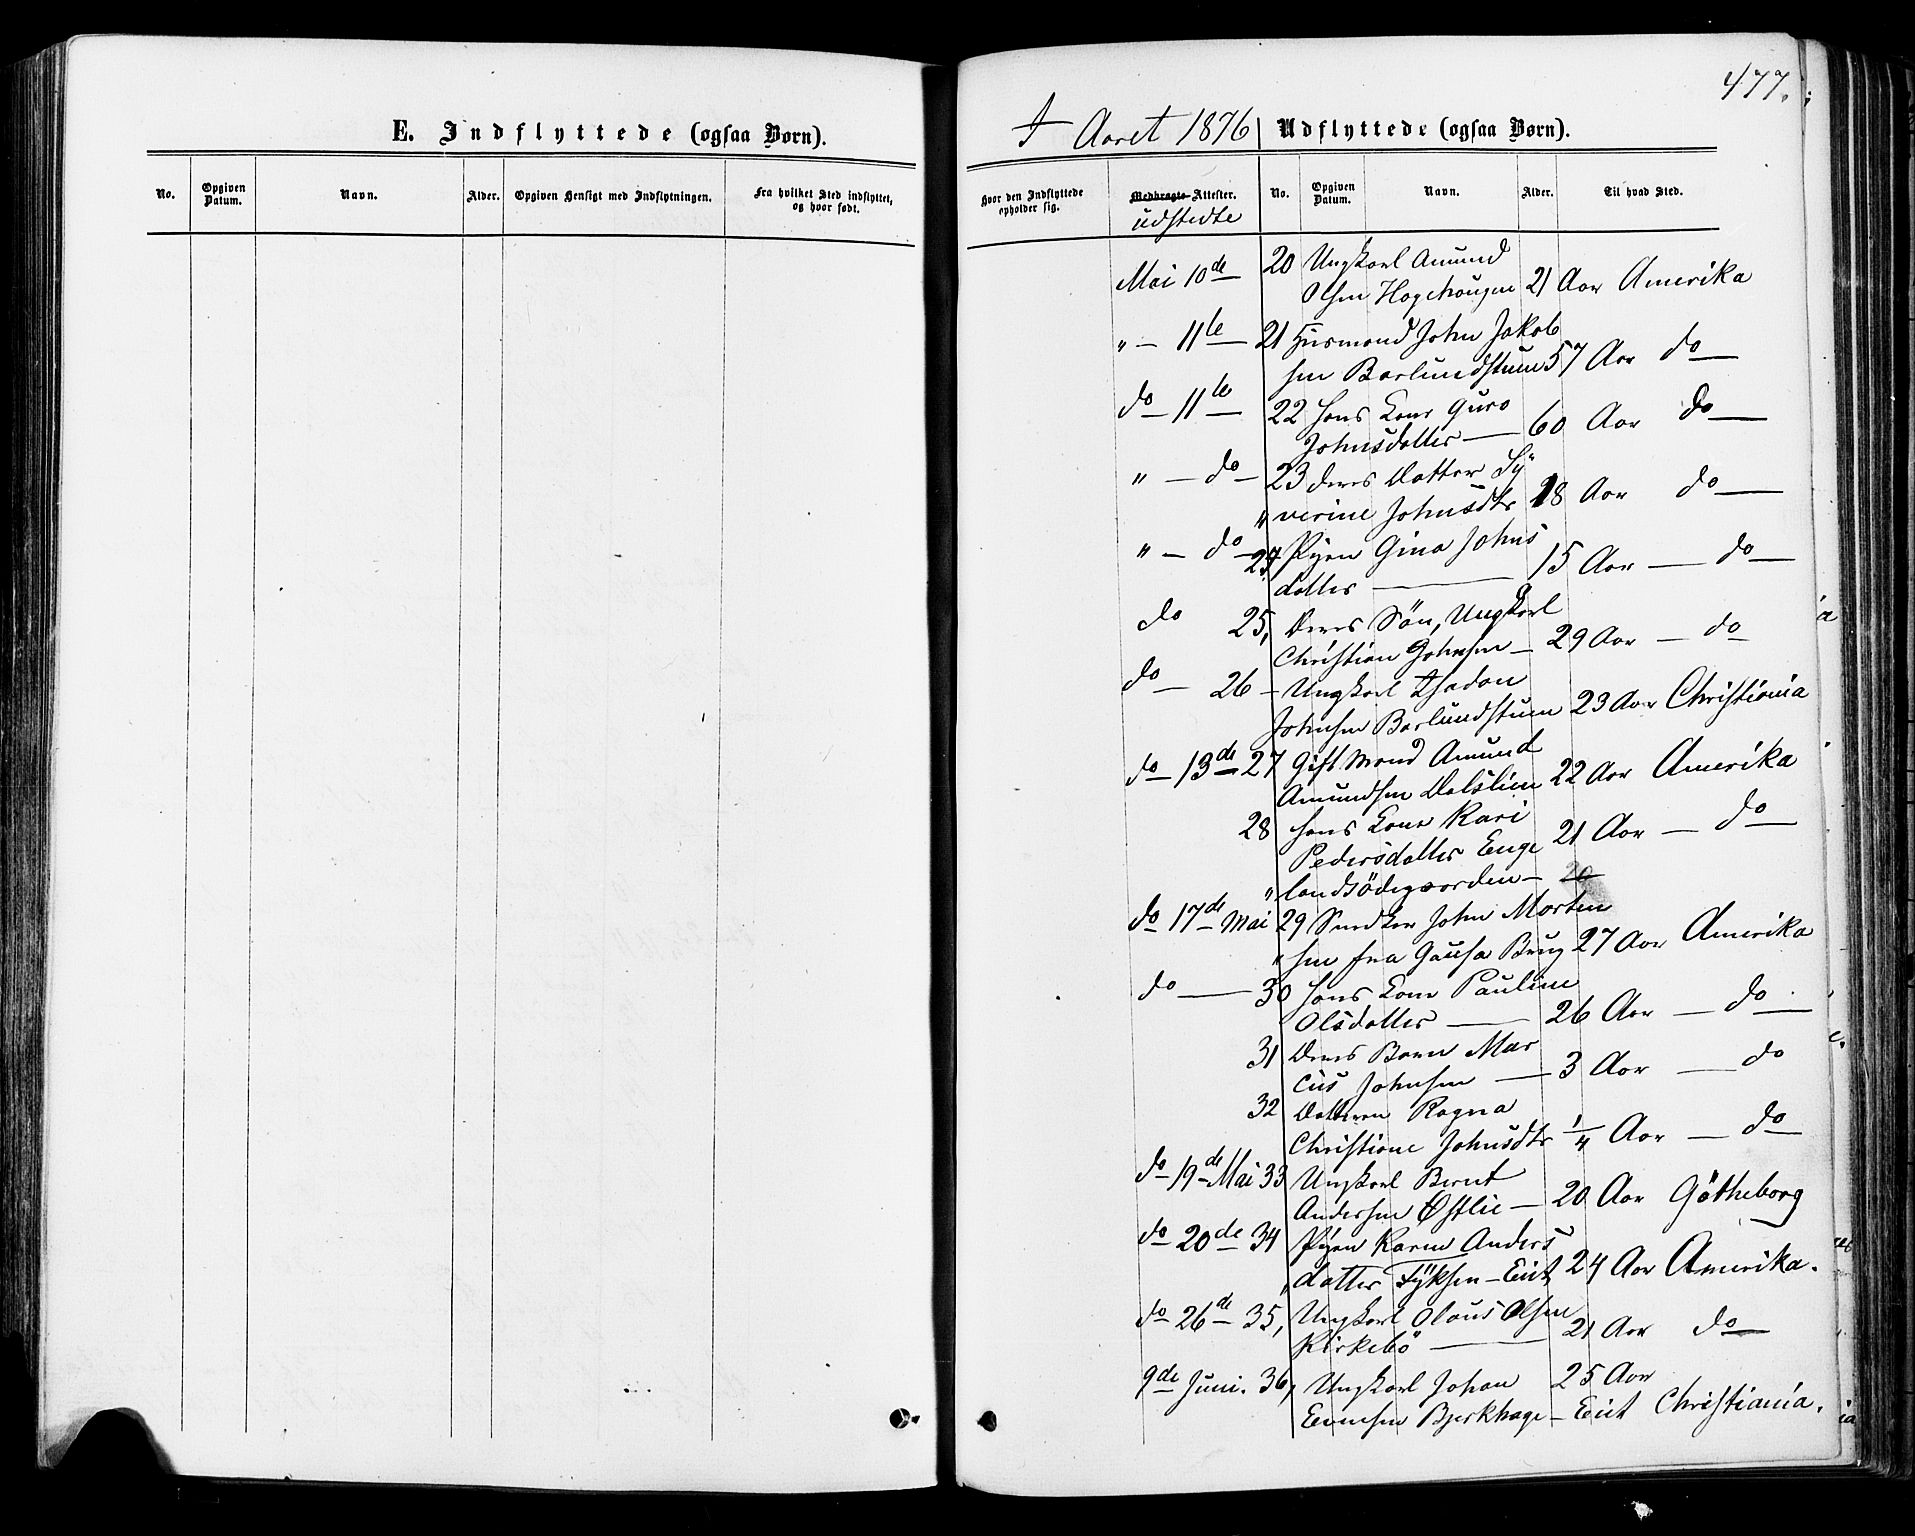 477.
E. Indflyttede (ogsaa Børn).
I Aaret 1876 Udflyttede (ogsaa Børn).
No. Opgiven Datum. Navn. Alder. Opgiven Hensigt med Indflytningen. Fra hvilket Sted indflyttet, og hvor født.
Hvor den Indflyttede opholder sig. Medbragte Attester. No. Opgiven Datum. Navn. Alder. Til hvad Sted.
udstedte
Mai 10de 20 Ungkarl Amund
Olsen Hagehaugen 21 Aar Amerika
" — 11te — 21 Husmand John Jakob
sen Barlundstuen 57 Aar do
do 11te — 22 Hans Kone Guro
Johnsdatter — 60 Aar do
" — do — 23 deres Datter Sy
" verine Johnsdtr 18 Aar do
" — do — 24 Pigen Gina Johns
datter — 15 Aar — do
do 25, Deres Søn, Ungkarl
Christian Johnsen — 29 Aar — do
do — 26 — Ungkarl
Johnsen Barlundstuen 23 Aar Christiania
do 13de 27 Gift Mand Amund
Amundsen Dalslien 22 Aar Amerika
28 Hans Kone Kari
Pedersdatter Enge 21 Aar — do
" landsødegaarden —
do 17de Mai 29 Snedker John Morten
" sen fra Gausa Brug 27 Aar Amerika
do — 30 Hans Kone Pauline
Olsdatter — 26 Aar — do
31 Deres Barn Mar
cus Johnsen — 3 Aar — do
32 Datteren Ragna
Christiane Johnsdtr 1/4 Aar — do
do 19de Mai 33 Ungkarl Bernt
Andersen Østlie — 20 Aar Gøtheborg
do 20de 34 Pigen Karen Anders
" datter Fyksen — Eiet 24 Aar Amerika.
do 26de 35, Ungkarl Olaus Olsen
Kirkebø — 21 Aar do
9de Juni. 36, Ungkarl Johan 25 Aar
Evensen Bjerkhage — Eiet Christiania.